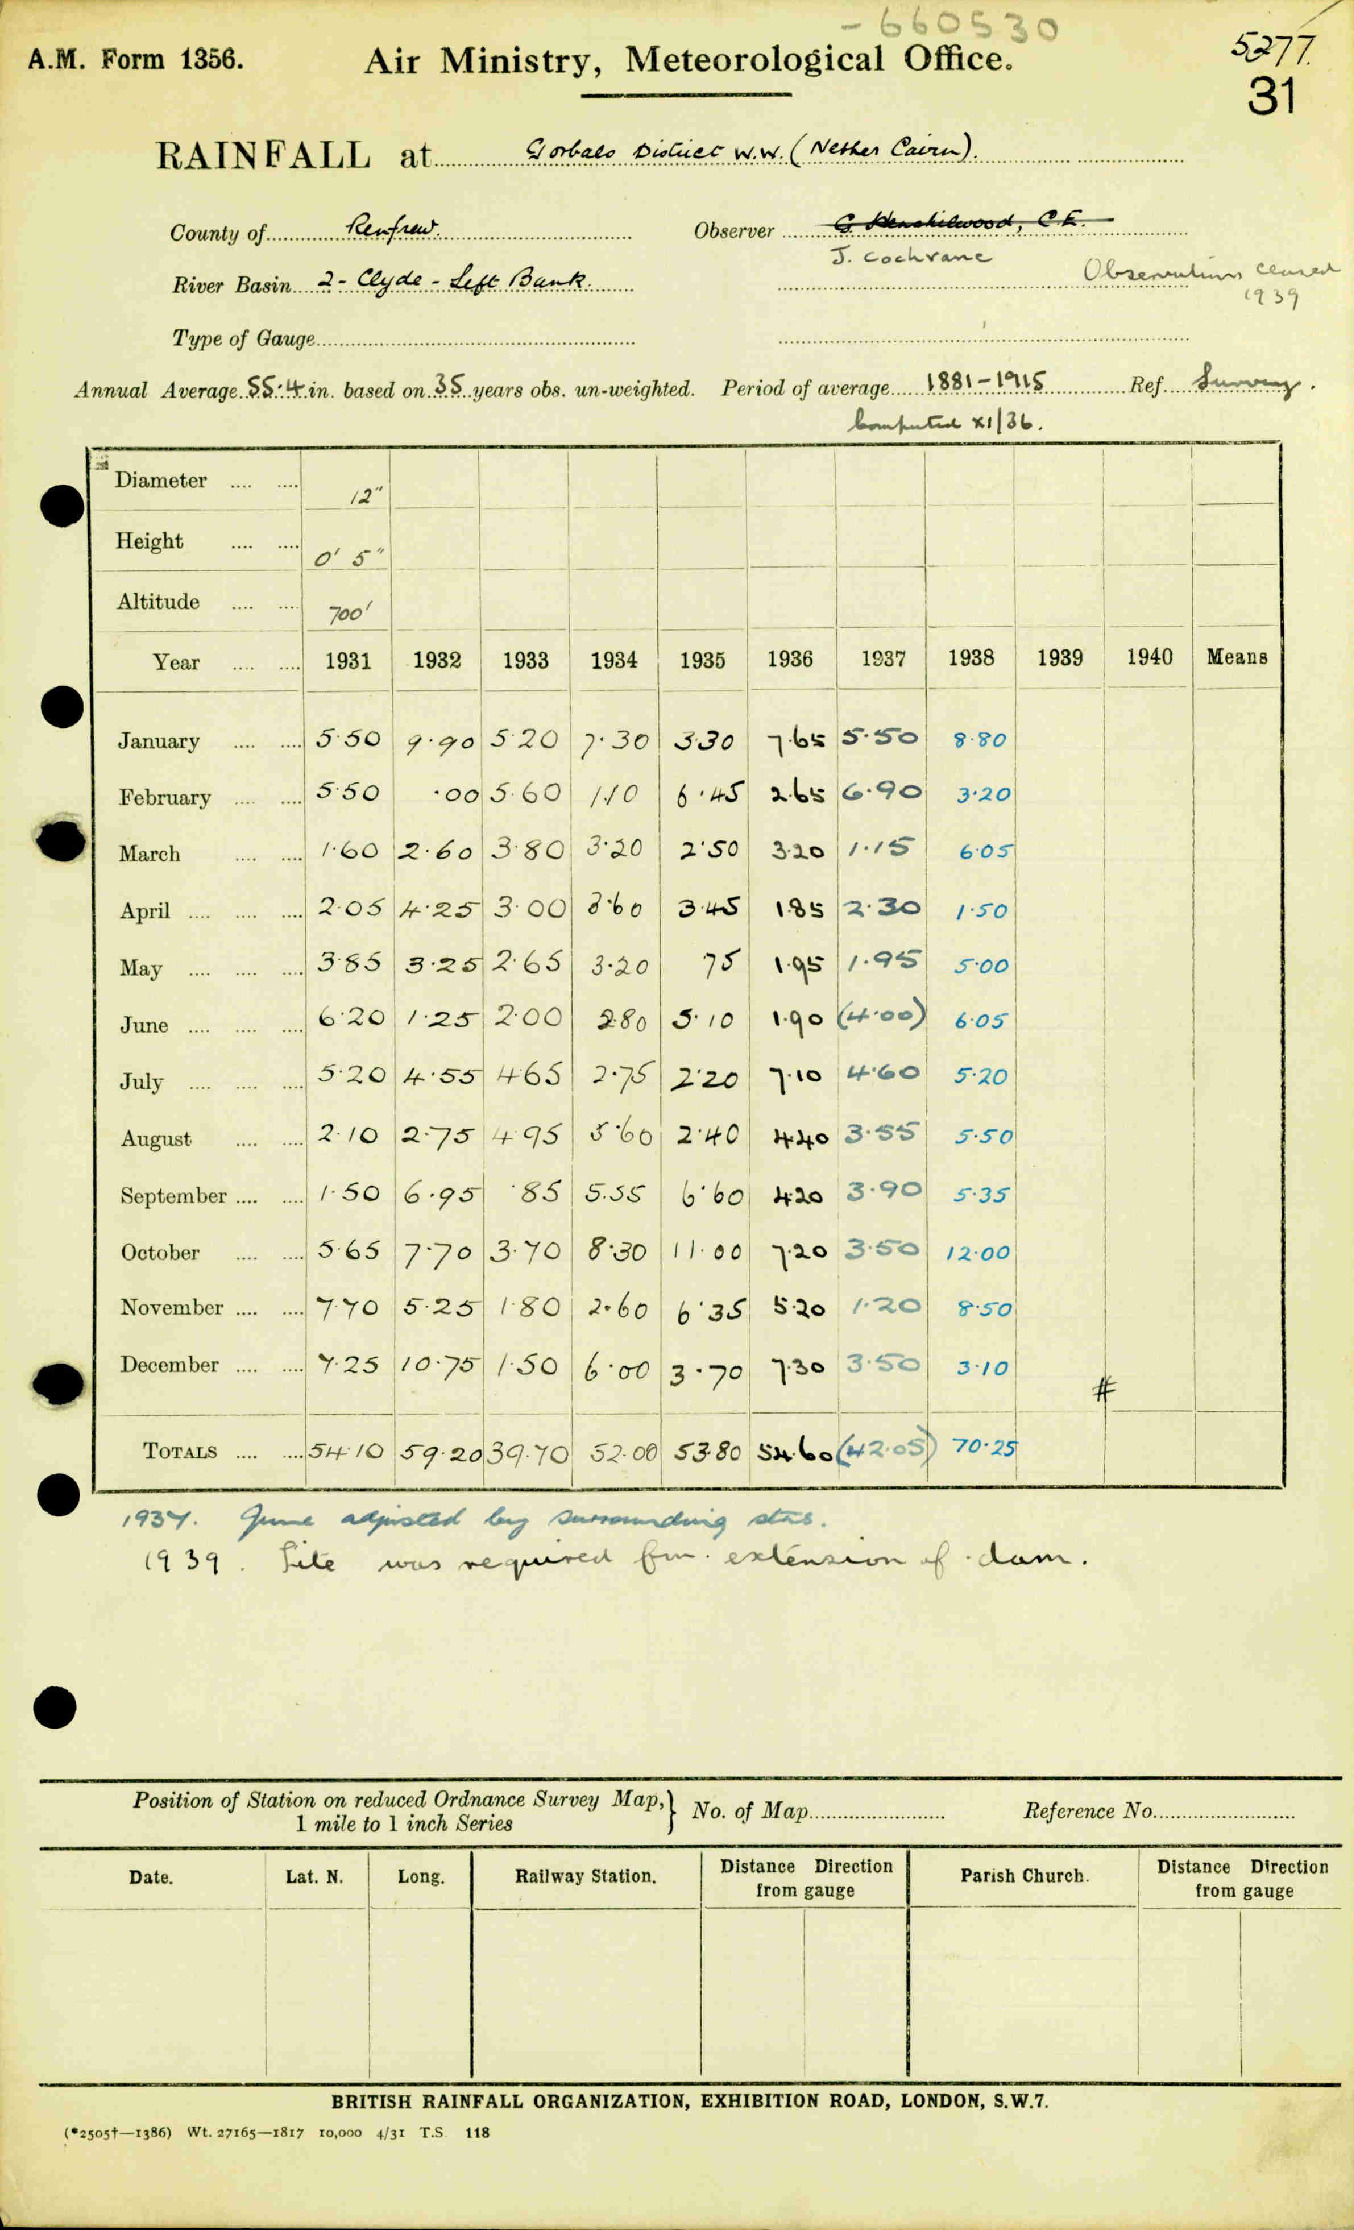 - 660530
A.M. Form 1356.
Air Ministry, Meteorological Office.
5277.
31
RAINFALL at Gorbals District W.W. (Nether Cairn).
County of Renfrew. Observer G. Henshilwood, C.E.
J. Cochrane
River Basin 2 - Clyde - Left Bank. Observations ceased
1939
Type of Gauge
Annual Average 55.4 in. based on 35 years obs. un-weighted. Period of average 1881-1915 Ref. Survey.
Computed XI/36.
Diameter 12"
Height 0' 5"
Altitude 700'
Year 1931 1932 1933 1934 1935 1936 1937 1938 1939 1940 Means
January 5.50 9.90 5.20 7.30 3.30 7.65 5.50 8.80
February 5.50 .00 5.60 1.10 6.45 2.65 6.90 3.20
March 1.60 2.60 3.80 3.20 2.50 3.20 1.15 6.05
April 2.05 4.25 3.00 3.60 3.45 1.85 2.30 1.50
May 3.85 3.25 2.65 3.20 .75 1.95 1.95 5.00
June 6.20 1.25 2.00 2.80 5.10 1.90 (4.00) 6.05
July 5.20 4.55 4.65 2.75 2.20 7.10 4.60 5.20
August 2.10 2.75 4.95 5.60 2.40 4.40 3.55 5.50
September 1.50 6.95 .85 5.55 6.60 4.20 3.90 5.35
October 5.65 7.70 3.70 8.30 11.00 7.20 3.50 12.00
November 7.70 5.25 1.80 2.60 6.35 5.20 1.20 8.50
December 7.25 10.75 1.50 6.00 3.70 7.30 3.50 3.10
#
TOTALS 54.10 59.20 39.70 52.00 53.80 54.60 (42.05) 70.25
1937. June adjusted by surrounding stns.
1939. Site was required for extension of dam.
Position of Station on reduced Ordnance Survey Map, } No. of Map Reference No.
1 mile to 1 inch Series
Date. Lat. N. Long. Railway Station. Distance Direction from gauge Parish Church. Distance Direction from gauge
BRITISH RAINFALL ORGANIZATION, EXHIBITION ROAD, LONDON, S.W.7.
(*2505†—1386) Wt. 27165—1817 10,000 4/31 T.S. 118